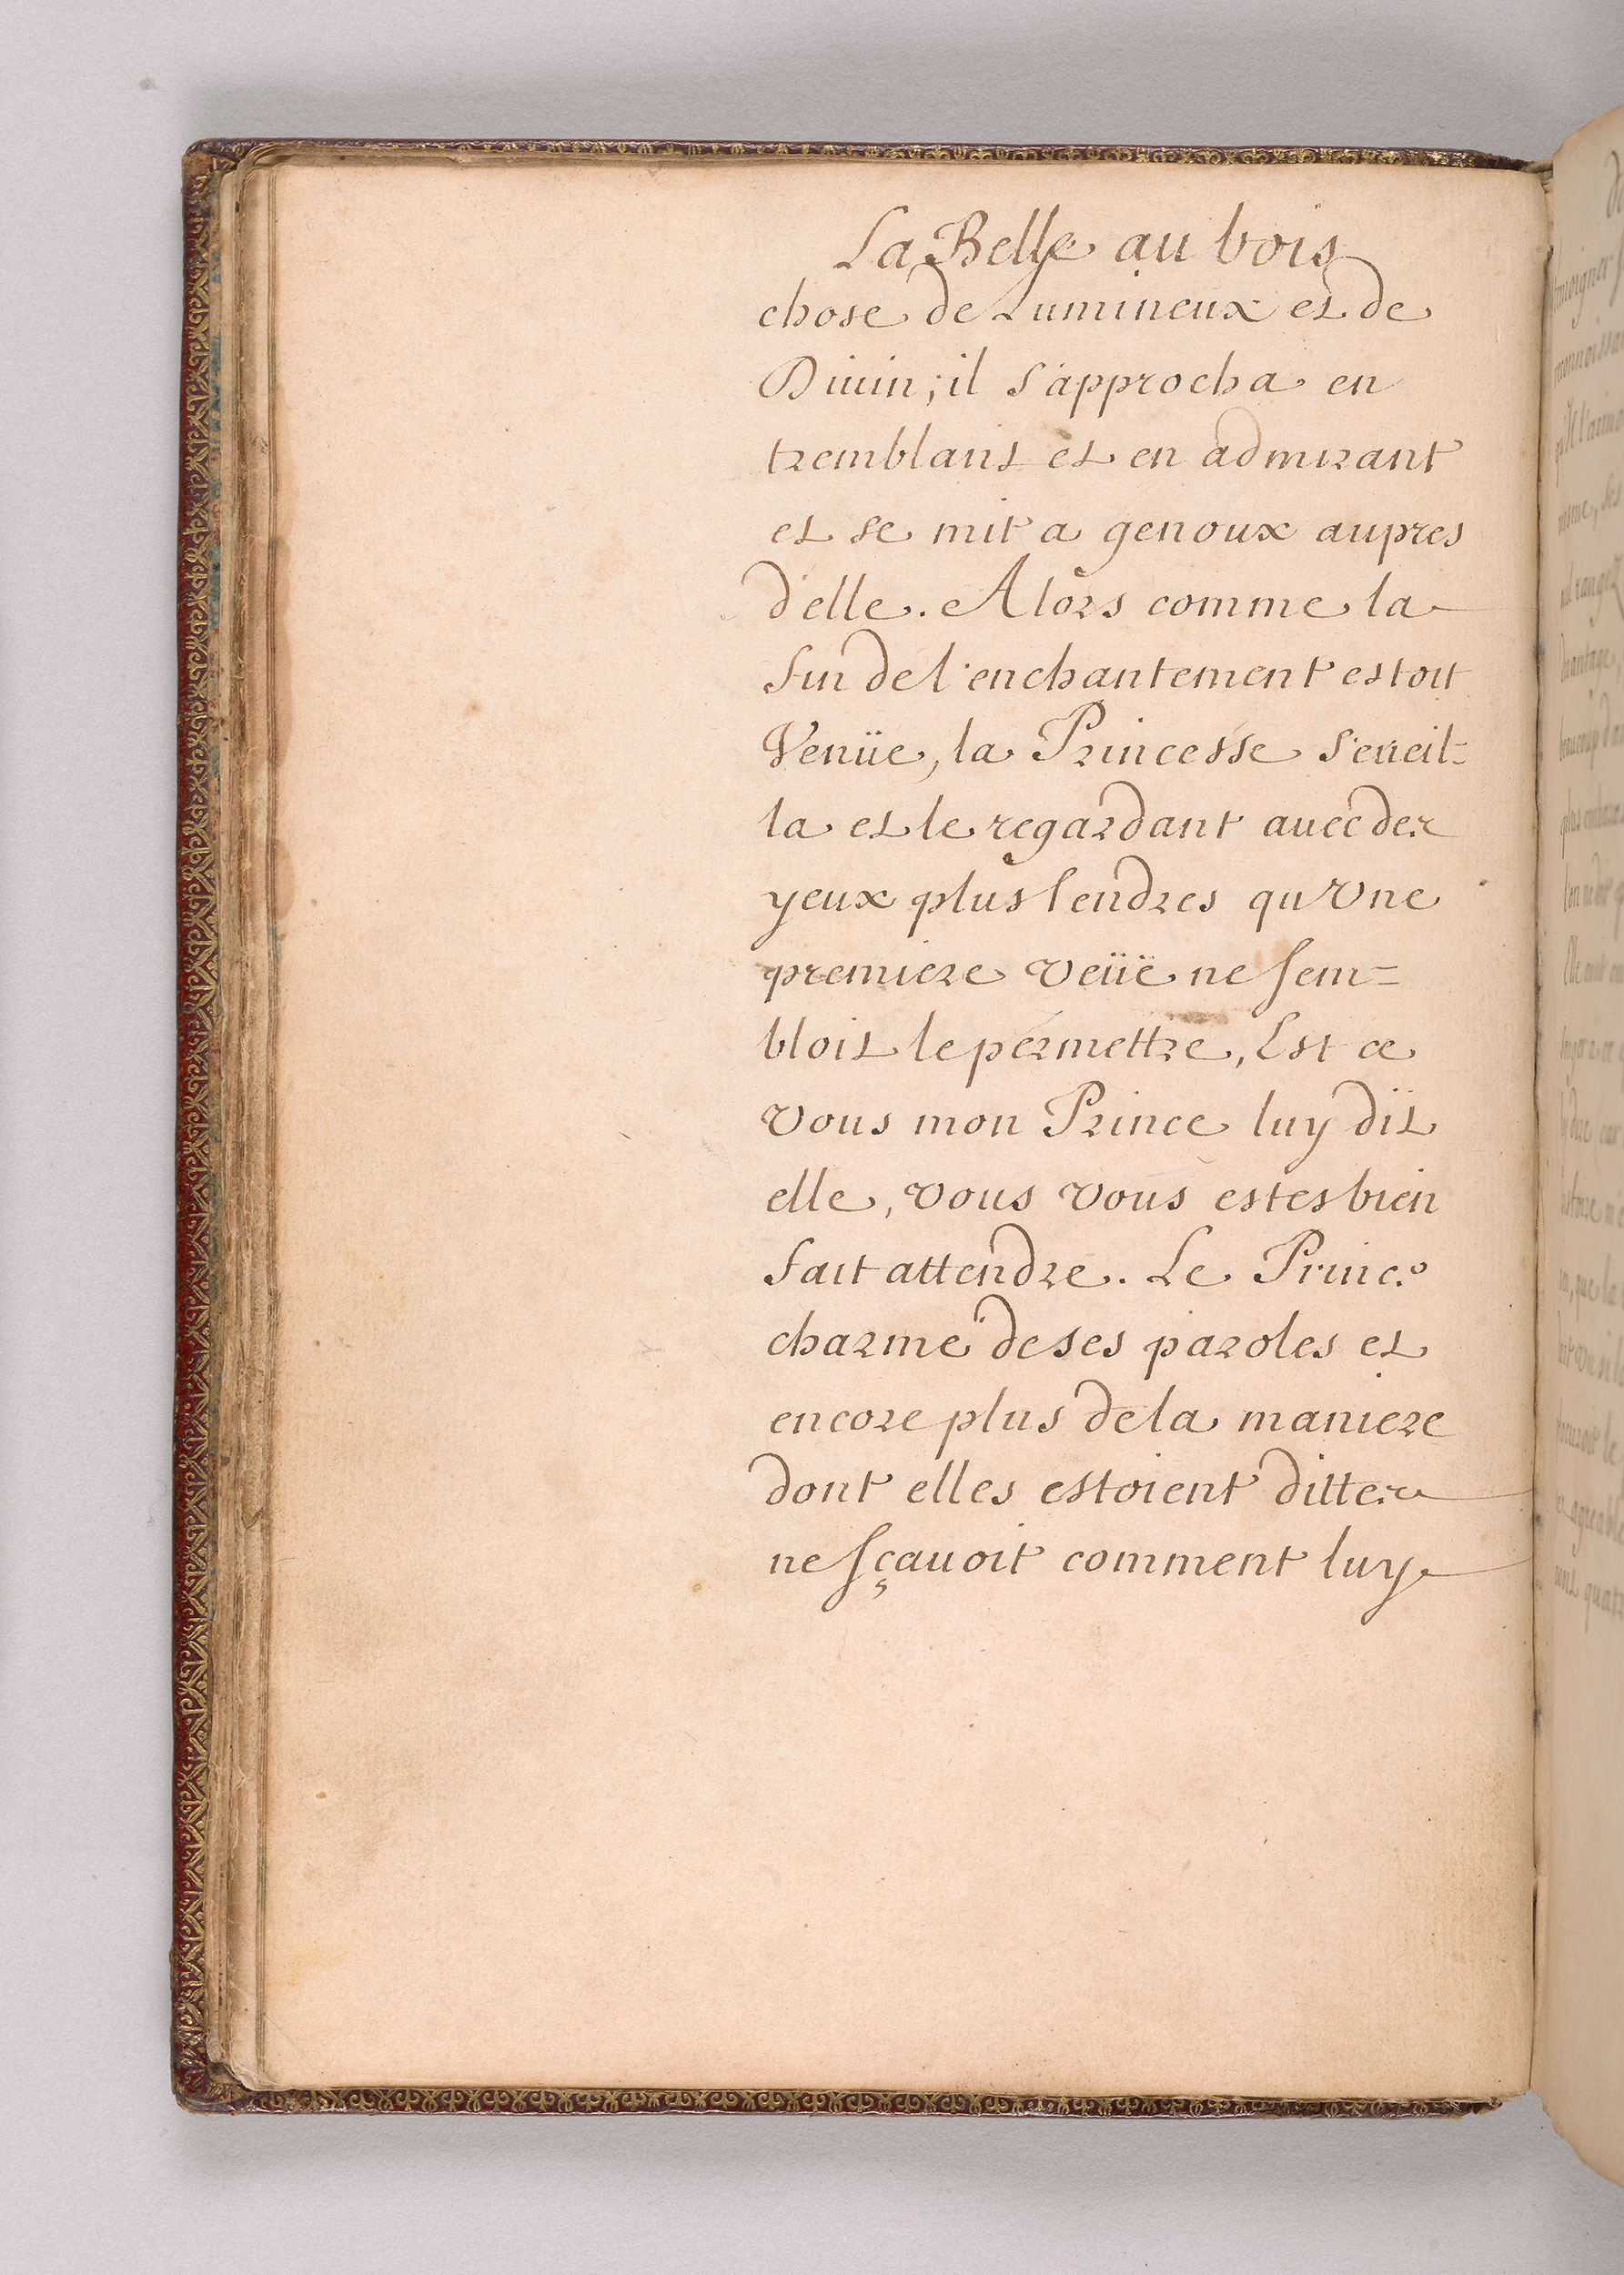 La Belle au bois
chose de Lumineux et de
Diuin; il s'approcha en
tremblant et en admirant
et se mit a genoux aupres
d'elle. Alors comme la
fin de l'enchantement estoit
Venüe, la Princesse s'eueil-
la et le regardant auec des
yeux plus tendres qu'vne
premiere veüe ne sem-
bloit le permettre, Est ce
vous mon Prince luy dit
elle, vous vous estes bien
fait attendre. Le Prince
charmé de ses paroles et
encore plus de la maniere
dont elles estoient dittes
ne sçauoit comment luy